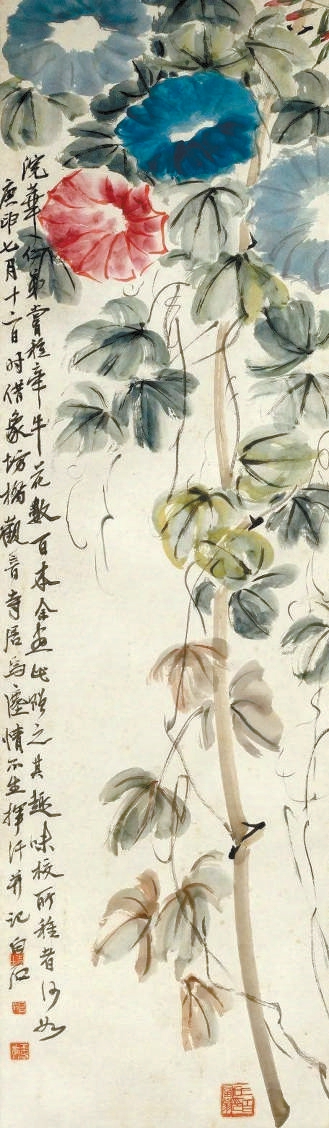 浣華仁弟嘗種牽牛花數百本余画此贈之其趣味較所種者何如
庚申七月十二日時借象坊橋觀音寺居焉塵情不生揮汗并記 白石